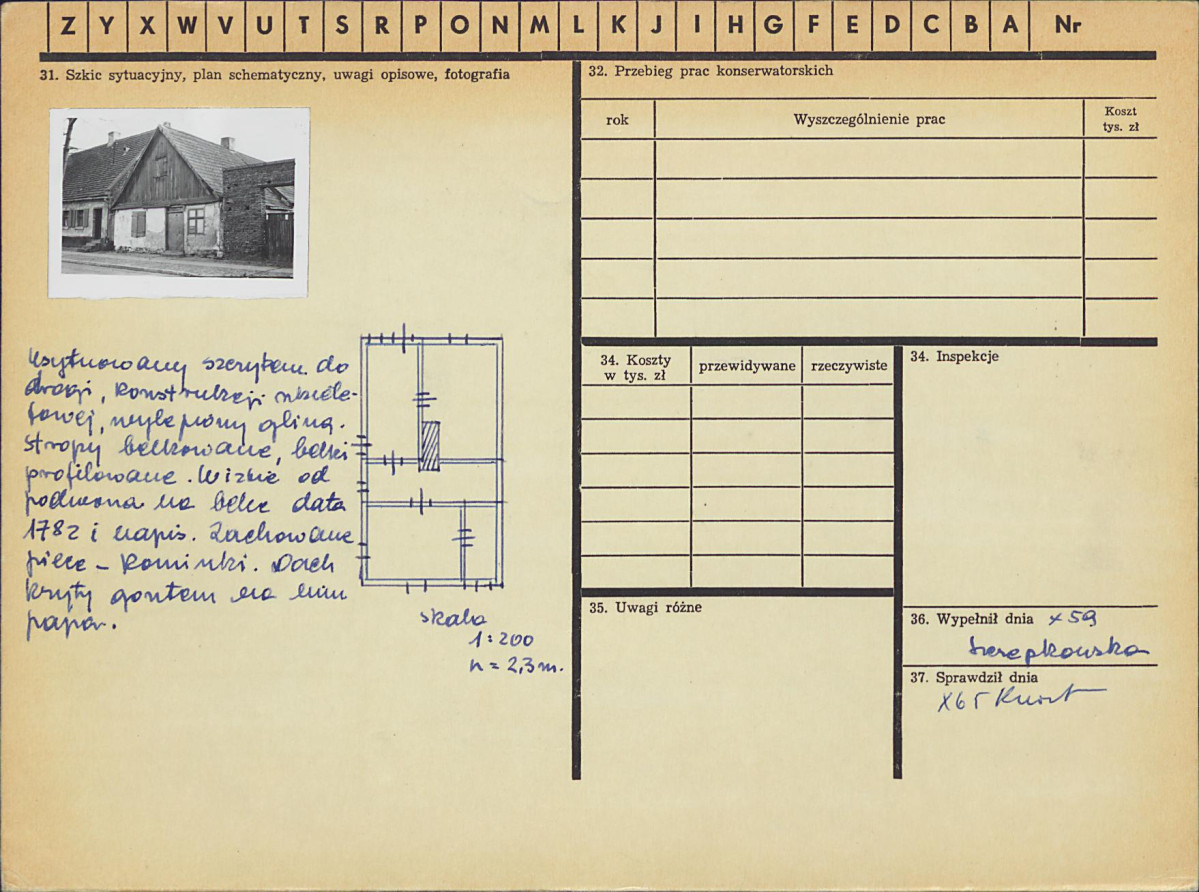 Z Y X W V U T S R P O N M L K J I H G F E D C B A Nr
31. Szkic sytuacyjny, plan schematyczny, uwagi opisowe, fotografia
Usytuowany szczytem do
drogi, konstrukcji szkiele-
towej, wylepiony gliną.
Stropy belkowane, belki
profilowane. W izbie od
podwórza na belce data
1782 i napis. Zachowane
piece – kominki. Dach
kryty gontem na nim
papa.
skala
1:200
h = 2,3 m.
32. Przebieg prac konserwatorskich
rok
Wyszczególnienie prac
Koszt
tys. zł
34. Koszty
w tys. zł
przewidywane
rzeczywiste
34. Inspekcje
35. Uwagi różne
36. Wypełnił dnia x 59
37. Sprawdził dnia
X 65